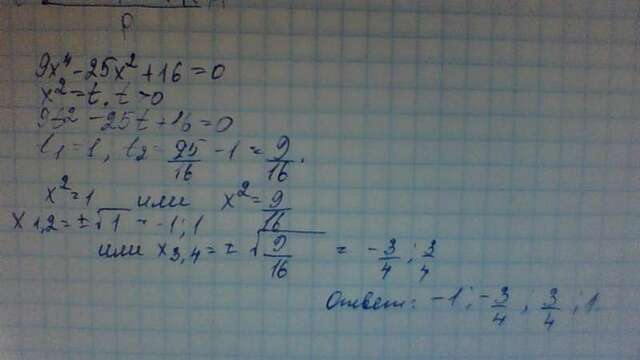 9x⁴ - 25x² + 16 = 0
x² = t, t > 0
9t² - 25t + 16 = 0
t₁ = 1, t₂ = 25/16 - 1 = 9/16.
x² = 1 или x² = 9/16
x₁,₂ = ±√1 = -1; 1
или x₃,₄ = ±√(9/16) = -3/4; 3/4
Ответ: -1; -3/4; 3/4; 1